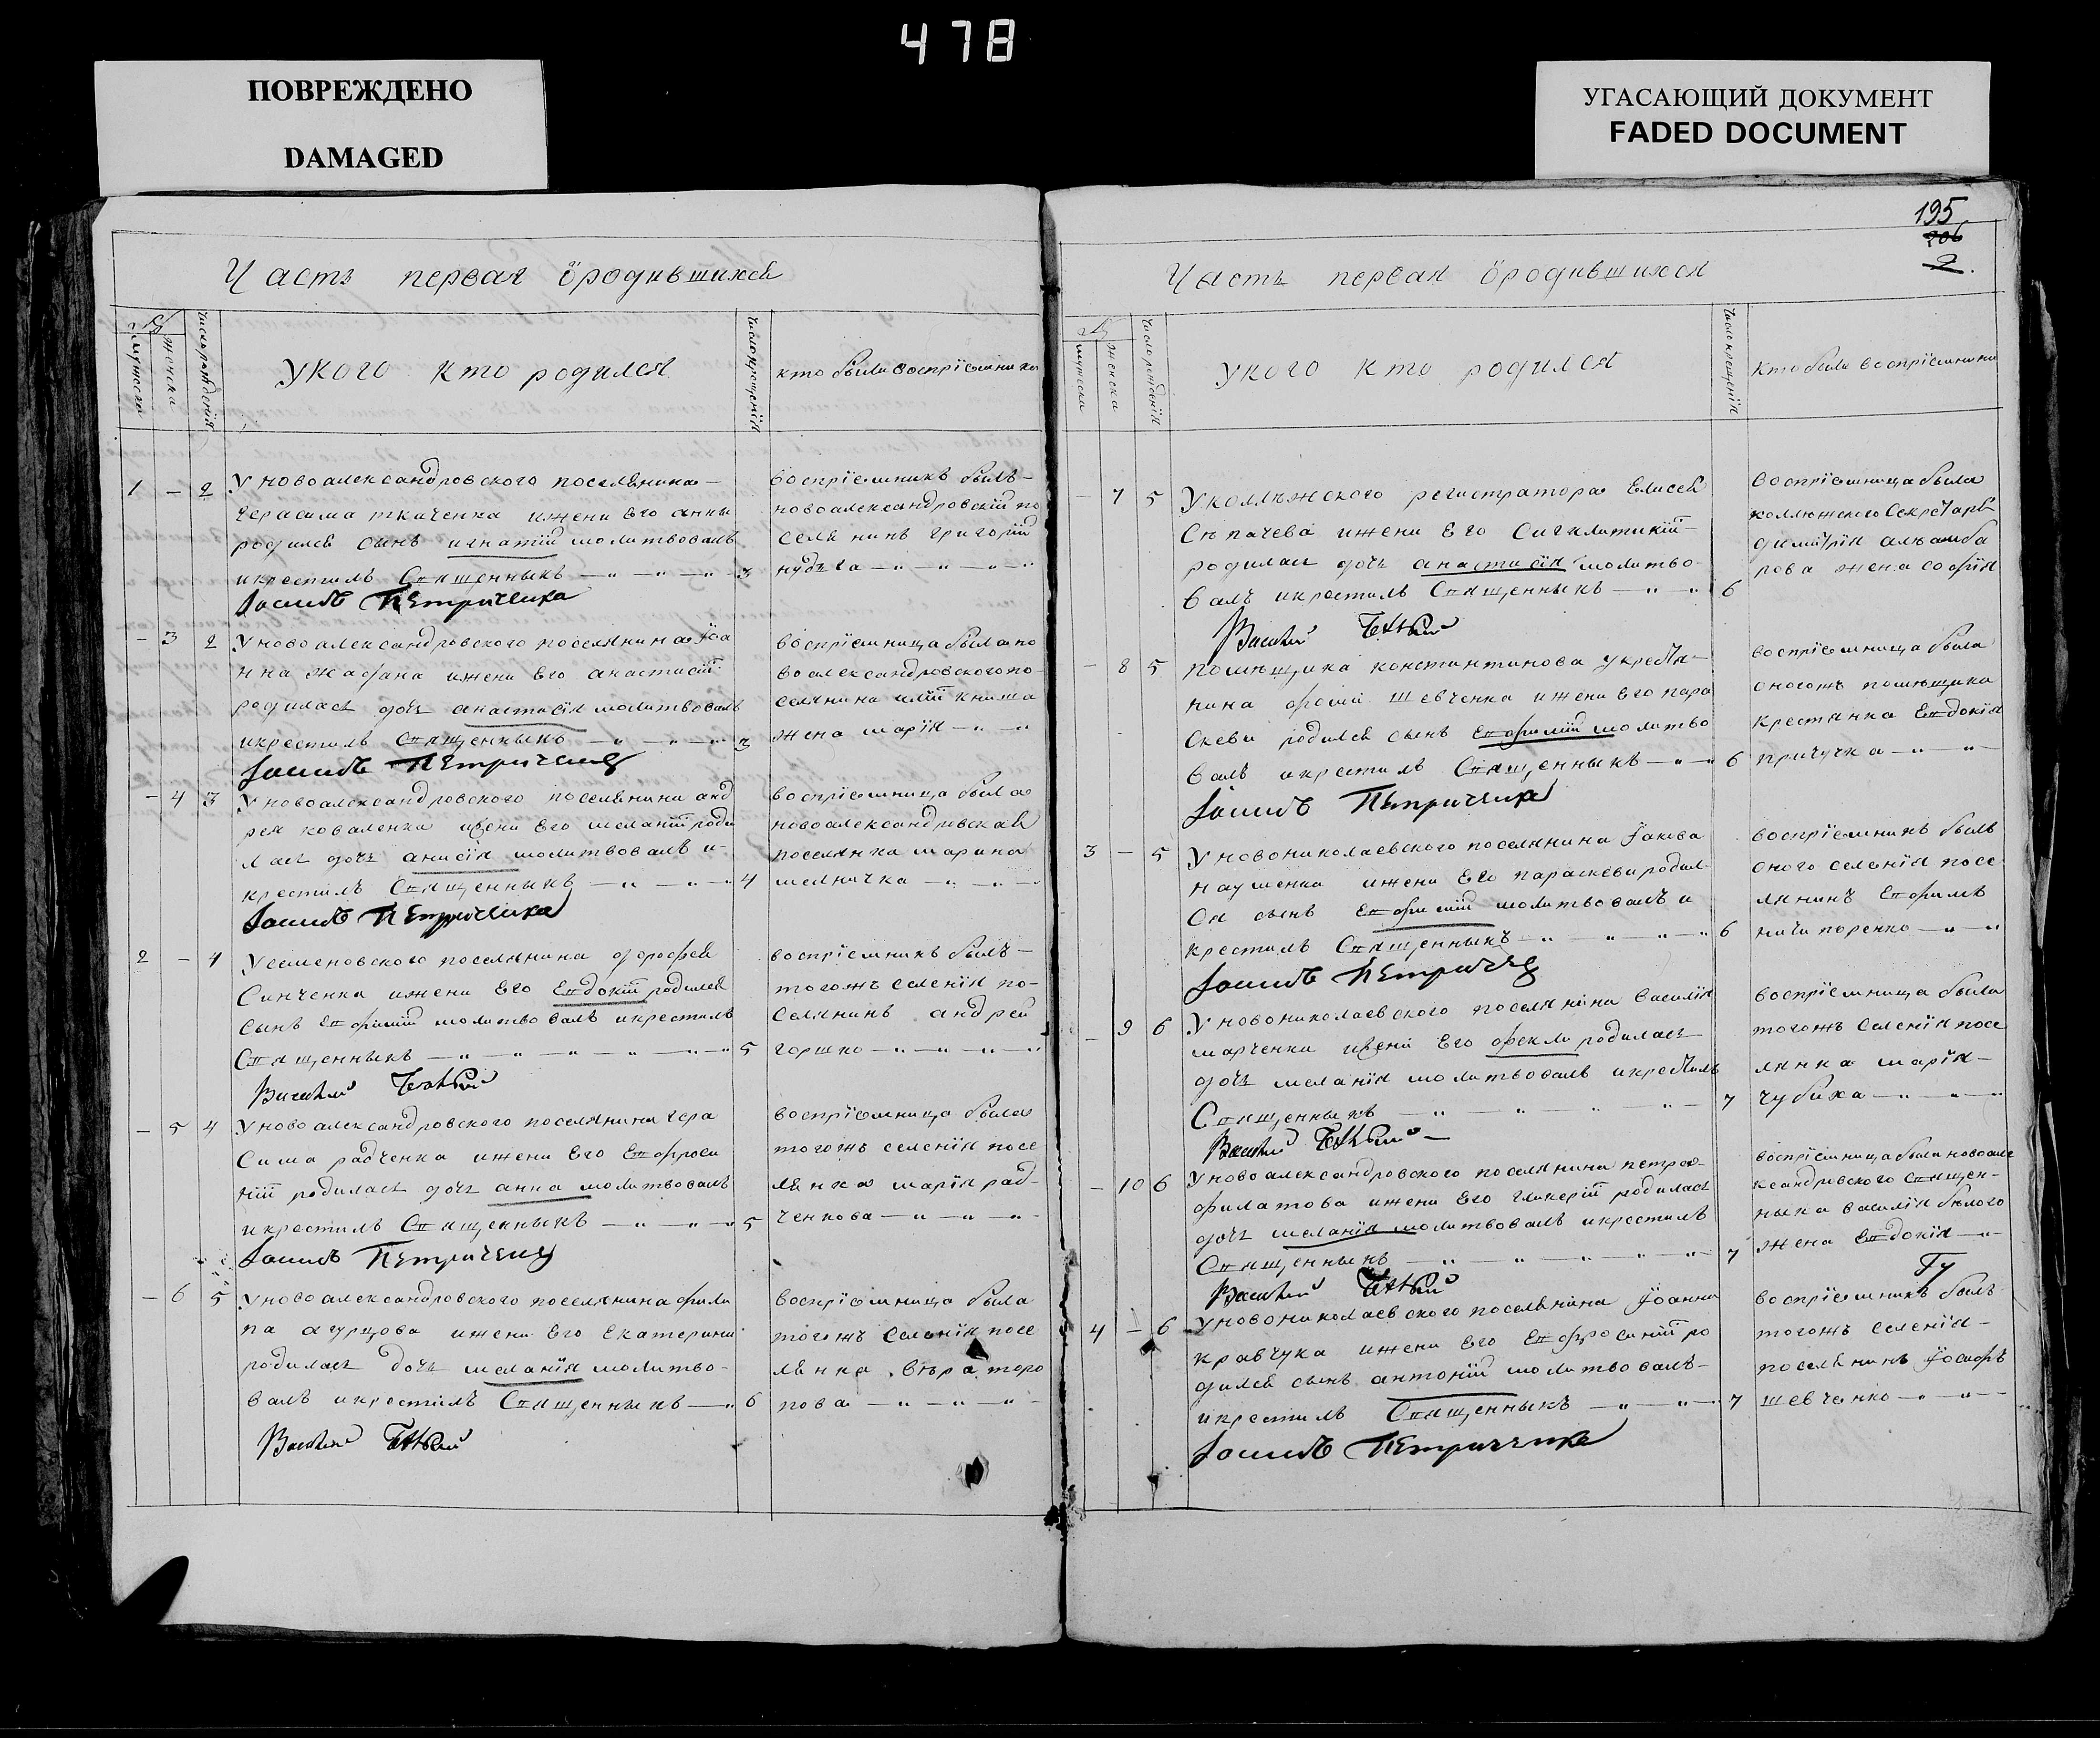 478
ПОВРЕЖДЕНО
DAMAGED
УГАСАЮЩИЙ ДОКУМЕНТ
FADED DOCUMENT
Часть первая ородившихся
№
мужеска
женска
число рождения
Укого кто родился
число крещенія
кто были воспріемники
1 — 2 У новоалександровского поселянина
герасима ткаченка ижены Его анны
родился сынъ игнатій молитвовалъ
икрестилъ Священныкъ 3
Іосифъ Петриченко
воспріемникъ былъ
новоалександровскій по
селянинъ григорій
— 3 2 У новоалександровского поселянина Іоа
нна жафана ижены Его анастасіи
родилась дочь анастасія молитвовалъ
икрестилъ Священныкъ 3
Іосифъ Петриченко
воспріемница была но
воалександровского по
селянина иліи книша
жена марія
— 4 3 У новоалександровского поселянина анд
рея коваленка ижены Его меланіи роди
лась дочь анисія молитвовалъ и
крестилъ Священныкъ 4
Іосифъ Петриченко
воспріемница была
новоалександровская
поселянка марина
мелничка
2 — 4 У семеновского поселянина дорофея
Синченка ижены Его Евдокіи родился
сынъ Евфимій молитвовалъ икрестилъ
Священныкъ 5
Василій Белый
воспріемникъ былъ
тогожъ селенія по
селянинъ андрей
горшко
— 5 4 У новоалександровского поселянина гера
сима радченка ижены Его Евфроси
ніи родилась дочь анна молитвовалъ
икрестилъ Священныкъ 5
Іосифъ Петриченко
воспріемница была
тогожъ селенія посе
лянка марія рад
ченкова
— 6 5 У новоалександровского поселянина фили
па агурцова ижены Его Екатерины
родилась дочь меланія молитво
валъ икрестилъ Священныкъ 6
Василій Белый
воспріемница была
тогожъ селенія посе
лянка вера торо
пова
195
206
2
Часть первая ородившихся
№
мужеска
женска
число рожденія
Укого кто родился
число крещенія
Кто были воспріемники
— 7 5 У коллѣжского регистратора Елисея
Сѣпачева ижены Его Сигклитикіи
родилась дочь анастасія молитво
валъ икрестилъ Священныкъ 6
Василій Белый
воспріемница была
коллѣжского Секретаря
димитрія
рова жена софія
— 8 5 помѣщика константинова укрестя
нина фомы шевченка ижены Его пара
скевы родился сынъ Евфимій молитво
валъ икрестилъ Священныкъ 6
Іосифъ Петриченко
воспріемница была
оногожъ помѣщика
крестянка Евдокія
причучка
3 — 5 У новониколаевского поселянина Іакова
наушенка ижены Его параскевы родил
ся сынъ Евфимій молитвовалъ и
крестилъ Священныкъ 6
Іосифъ Петриченко
воспріемникъ былъ
оного селенія посе
лянинъ Евфимъ
ничипоренко
— 9 6 У новониколаевского поселянина василія
марченка ижены Его феклы родилась
дочь меланія молитвовалъ икрестилъ
Священныкъ 7
Василій Белый
воспріемница была
тогожъ селенія посе
лянка марія
чубиха
— 10 6 У новоалександровского поселянина петра
филатова ижены Его гликеріи родилась
дочь меланія молитвовалъ икрестилъ
Священныкъ 7
Василій Белый
воспріемница была новоале
ксандровского священ
ныка василія белого
жена Евдокія
4 — 6 У новониколаевского поселянина Іоанна
кравчука ижены Его Евфросиніи ро
дился сынъ антоній молитвовалъ
икрестилъ Священныкъ 7
Іосифъ Петриченко
воспріемникъ былъ
тогожъ селенія
поселянинъ Іосифъ
шевченко